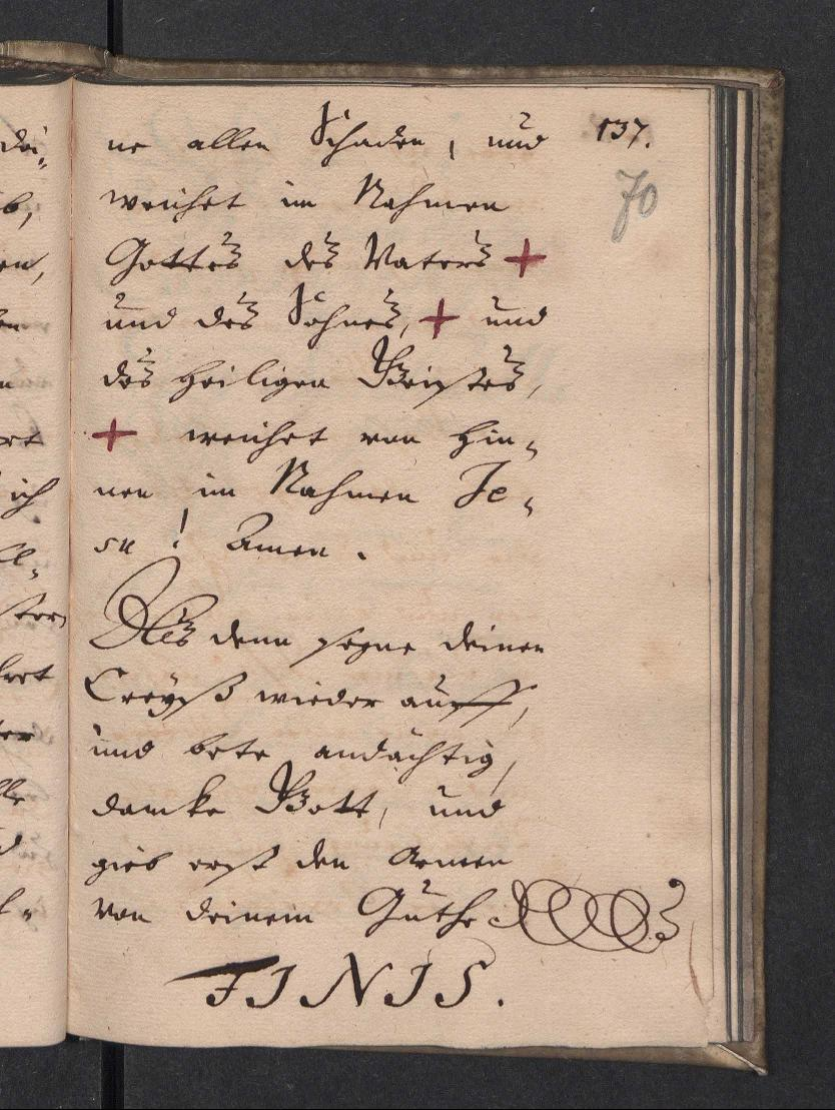 ne allen Schaden, und 137.
weichet im Nahmen 70
Gottes des Vaters +
und des Sohnes, + und
des heiligen Geistes,
+ weichet von hin=
nen im Nahmen Je=
su! Amen.
Als denn segne deinen
Creyß wieder auff,
und bete andächtig,
dancke Gott, und
gieb erst den Armen
von deinem Guthe
FINIS.